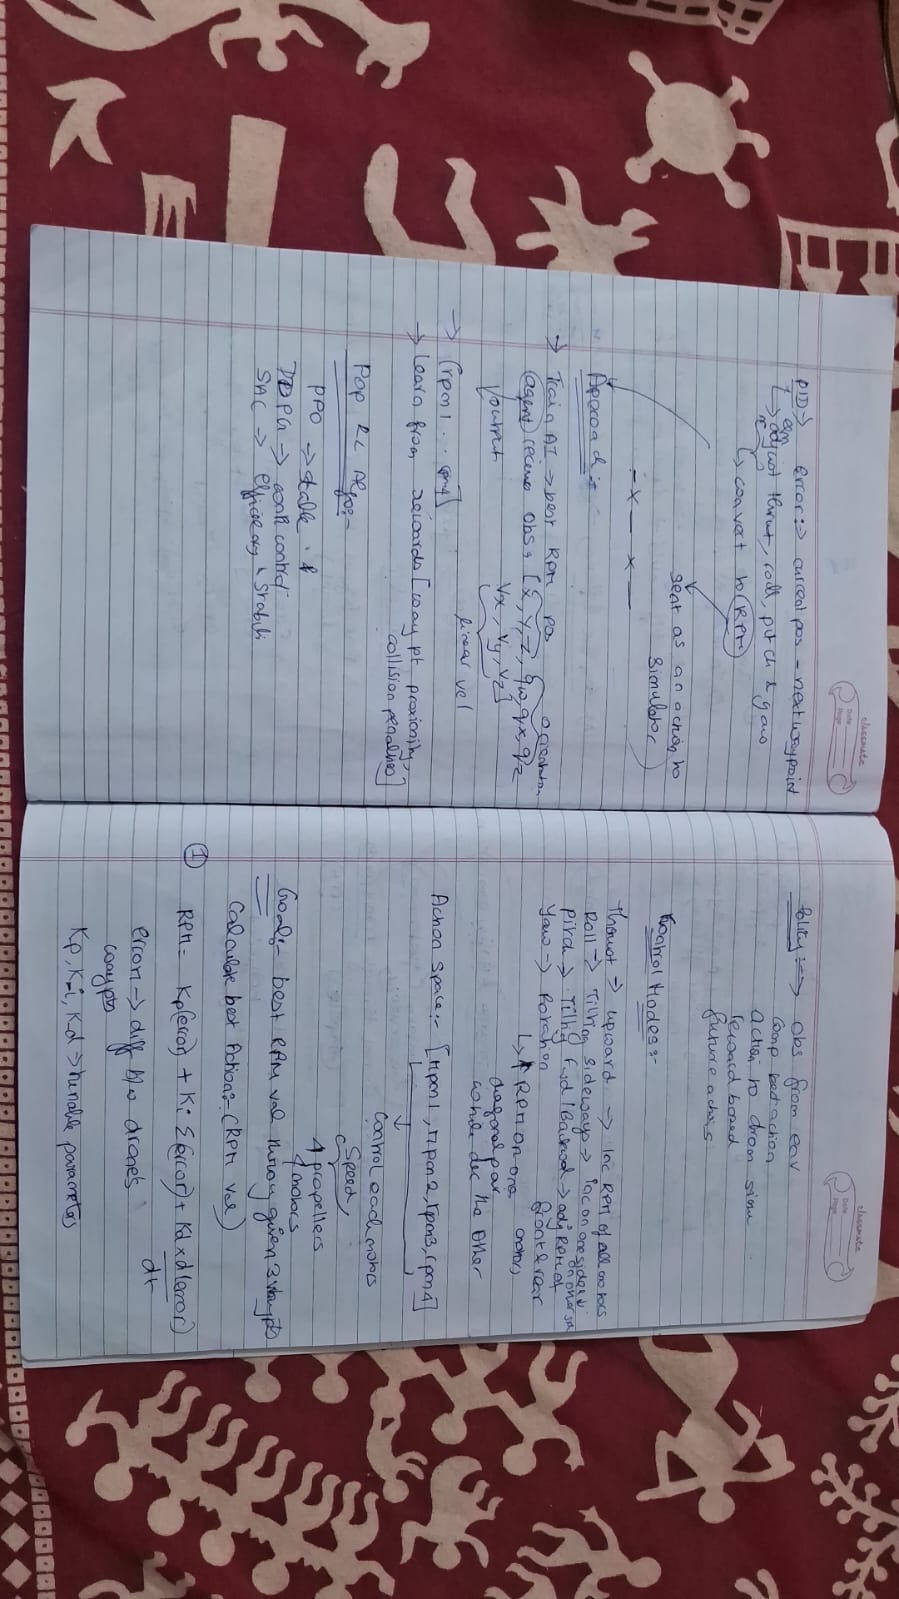 classmate
Date
Page
PID → Error :→ current pos - next waypoint
↳ adjust thrust, roll, pitch & yaw
↳ convert to RPM
Sent as an action to
Simulator
- x — x —
Approach :-
→ Train AI → best RPM
agent receives obs → [x, y, z, qw, qx, qz
orientation
Vx, Vy, Vz]
linear vel
→ [rpm1 .. rpm4]
→ learn from records [waypt proximity,
collision penalties]
Pop RL Algos :-
PPO → stable
DDPG → cont control
SAC → Efficiency & Stabili
classmate
Date
Page
Policy :→ Obs from env
comp best action
action to drone simu
reward based
future actions
Control Modes :-
Thrust → upward → inc RPM of all motors
Roll → Tilting sideways → inc on one side &
on other
Pitch → Tilting Fwd / Backwd → adj RPM of
front & rear
Yaw → Rotation
↳ ↑ RPM on one
diagonal pair
motors
while dec the other
Action Space :- [rpm1, rpm2, rpm3, rpm4]
Control each motors
Speed,
4 propellers
4 motors
Goal :- best RPM val given 3 waypts
Calculate best Action :- (RPM val)
① RPM = Kp(error) + Ki Σ(error) + Kd x d(error)
dt
error → diff b/w drone's
waypts
Kp, Ki, Kd → tunable parameters